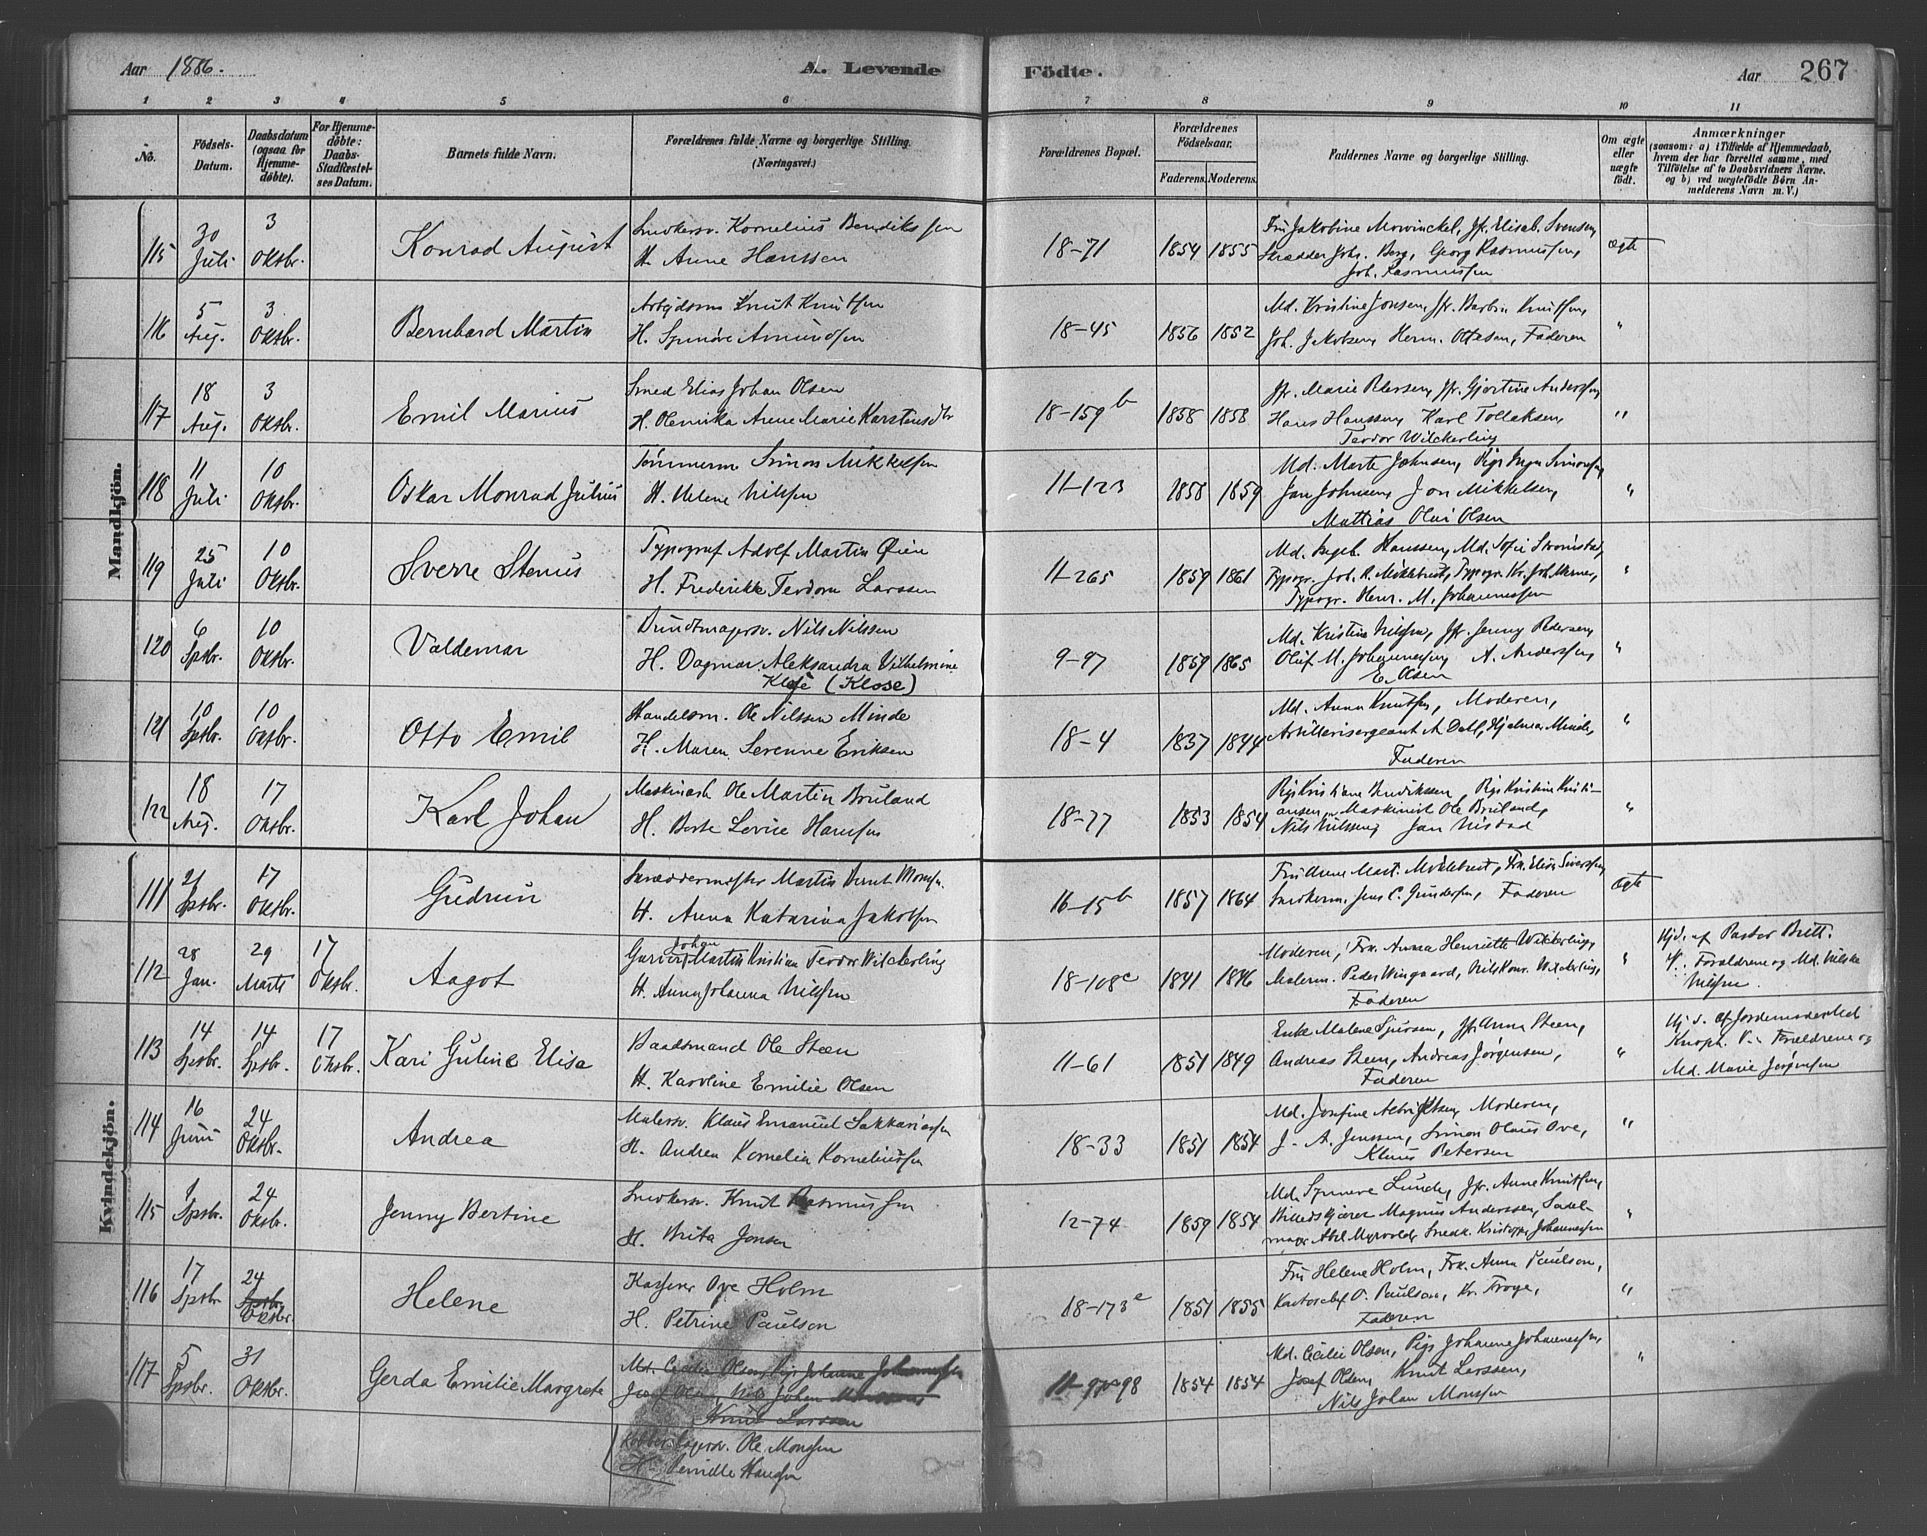 Aar 1886. A. Levende Födte. Aar 267
1 2 3 4 5 6 7 8 9 10 11
No.
Födsels-Datum.
Daabsdatum (ogsaa for Hjemme-döbte).
For Hjemme-döbte: Daabs-Stadfæstel-ses Datum.
Barnets fulde Navn.
Forældrenes fulde Navne og borgerlige Stilling. (Næringsvei.)
Forældrenes Bopæl.
Forældrenes Födselsaar.
Faderens. Moderens.
Faddernes Navne og borgerlige Stilling.
Om ægte eller uægte födt.
Anmærkninger (saasom: a) i Tilfælde af Hjemmedaab, hvem der har forrettet samme, med Tilföielse af to Daabsvidners Navne, og b) ved uægtefödte Börn An-melderens Navn m. V.)
Mandkjön.
115 30 Juli 3 Oktbr. Konrad August
Snedkersv. Kornelius Bendiksen
H. Anne Hanssen
18-71 1854 1855
Fru Jakobine Mowinckel, Jfr. Elisab. Svensen,
Skrædder Johs. Berg, Georg Rasmussen,
Joh. Rasmussen
ægte
116 5 Aug. 3 Oktbr. Bernhard Martin
Arbejdsm. Knut Knutsen
H. Synnøve Amundsen
18-45 1856 1852
Md. Kristine Jonsen, Jfr. Barbra Knutsen,
Joh. Jakobsen, Herm. Ottesen, Faderen
"
117 18 Aug. 3 Oktbr. Emil Marius
Smed Elias Johan Olsen
H. Olenika Anne Marie Karstensdtr
18-159 b 1858 1858
Jfr. Marie Petersen, Jfr. Gjertine Andersen,
Hans Hanssen, Karl Tollaksen,
Teodor Wilckerling
"
118 11 Juli 10 Oktbr. Oskar Monrad Julius
Tømmerm. Simon Mikkelsen
H. Helene Nilsen
11-123 1858 1859
Md. Marte Johnsen, Pige Inga Simonsen,
Jan Johnsen, Jon Mikkelsen,
Mattias Olai Olsen
"
119 25 Juli 10 Oktbr. Sverre Stenius
Typograf Adolf Martin Øien
H. Frederikke Teodora Larssen
11-265 1859 1861
Md. Ingeb. Hanssen, Md. Sofie Strømstad,
Typogr. Joh. R. Mikletvedt, Typogr. Kr. Joh. Werner,
Typogr. Henr. M. Johannessen
"
120 6 Spbr. 10 Oktbr. Valdemar
Buntmagersv. Nils Nilssen
H. Dagmar Aleksandra Vilhelmine
(Klose)
9-97 1859 1865
Md. Kristine Nilssen, Jfr. Jenny Pedersen,
Oluf M. Johannessen, A. Anderssen,
E. Olsen
"
121 10 Spbr. 10 Oktbr. Otto Emil
Handelsm. Ole Nilssen Minde
H. Maren Serenne Eriksen
18-4 1837 1844
Md. Anna Knutsen, Moderen,
Artillerisergeant A. Dall, Hjalmar Minde,
Faderen
"
122 18 Aug. 17 Oktbr. Karl Johan
Maskinarb. Ole Martin Bruland
H. Berte Lovise Hansen
18-77 1853 1854
Pige Kristiane Henrikssen, Pige Kristine Kristi-
ansen, Maskinist Ole Bruland,
Nils Nilssen, Jan Nistad
"
Kvindekjön.
111 21 Spbr. 17 Oktbr. Gudrun
Skræddermester Martin Bernt Monsen
H. Anna Katarina Jakobsen
16-15 b 1857 1864
Fru Anne Mart. Mikletvedt, Frk. Elise Sivertsen,
Snedkerm. Jens C. Gundersen, Faderen
ægte
112 28 Jan. 29 Marts 17 Oktbr. Aagot
Garver Johan Martin Kristian Teodor Wilckerling
H. Anna Johanna Nilssen
18-108 c 1841 1846
Moderen, Frk. Anna Henriette Wilckerling,
Malerm. Peder Wingaard, Nils Konr. Wilckerling,
Faderen
"
Hjd. af Pastor Britt.
V.: Forældrene og Md. Nilske
Nilssen.
113 14 Spbr. 14 Spbr. 17 Oktbr. Kari Guline Elisa
Baadsmand Ole Steen
H. Karoline Emilie Olsen
11-61 1851 1849
Enke Malene Sjursen, Jfr. Anna Steen,
Andreas Steen, Andreas Jørgensen,
Faderen
"
Hjd. af Jordemoder
Knoph. V.: Forældrene og
Md. Marie Jørgensen
114 16 Juni 24 Oktbr. Andrea
Malersv. Klaus Emanuel Sakkariassen
H. Andrea Kornelia Korneliussen
18-33 1851 1854
Md. Josefine Albrigtsen, Moderen,
J. A. Jenssen, Simon Olaus Ove,
Klaus Petersen
"
115 1 Spbr. 24 Oktbr. Jenny Bertine
Snedkersv. Knut Rasmussen
H. Brita Jonsen
12-74 1859 1854
Md. Synneve Lunde, Jfr. Anne Knutsen,
Billedskjærer Magnus Anderssen, Sadel-
mager Abel Myrvold, Snedk. Kristoffer Johannessen
"
116 17 Spbr 24 Spbr. Oktbr. Helene
Kasserer Ove Holm
H. Petrine Paulson
18-173 e 1851 1855
Fru Helene Holm, Frk. Anna Paulson,
Kontorchef O. Paulson, Kr. Troye,
Faderen
"
117 5 Spbr. 31 Oktbr. Gerda Emilie Margrete
Md. Cecilie Olsen, Pige Johanne Johannessen
Josef Olsen, Nils Johan Monssen
Knut Larssen
Kobberslagersv. Ole Monssen
H. Hansen
11-98 1854 1854
Md. Cecilie Olsen, Pige Johanne Johannessen,
Josef Olsen, Knut Larssen,
Nils Johan Monssen
"